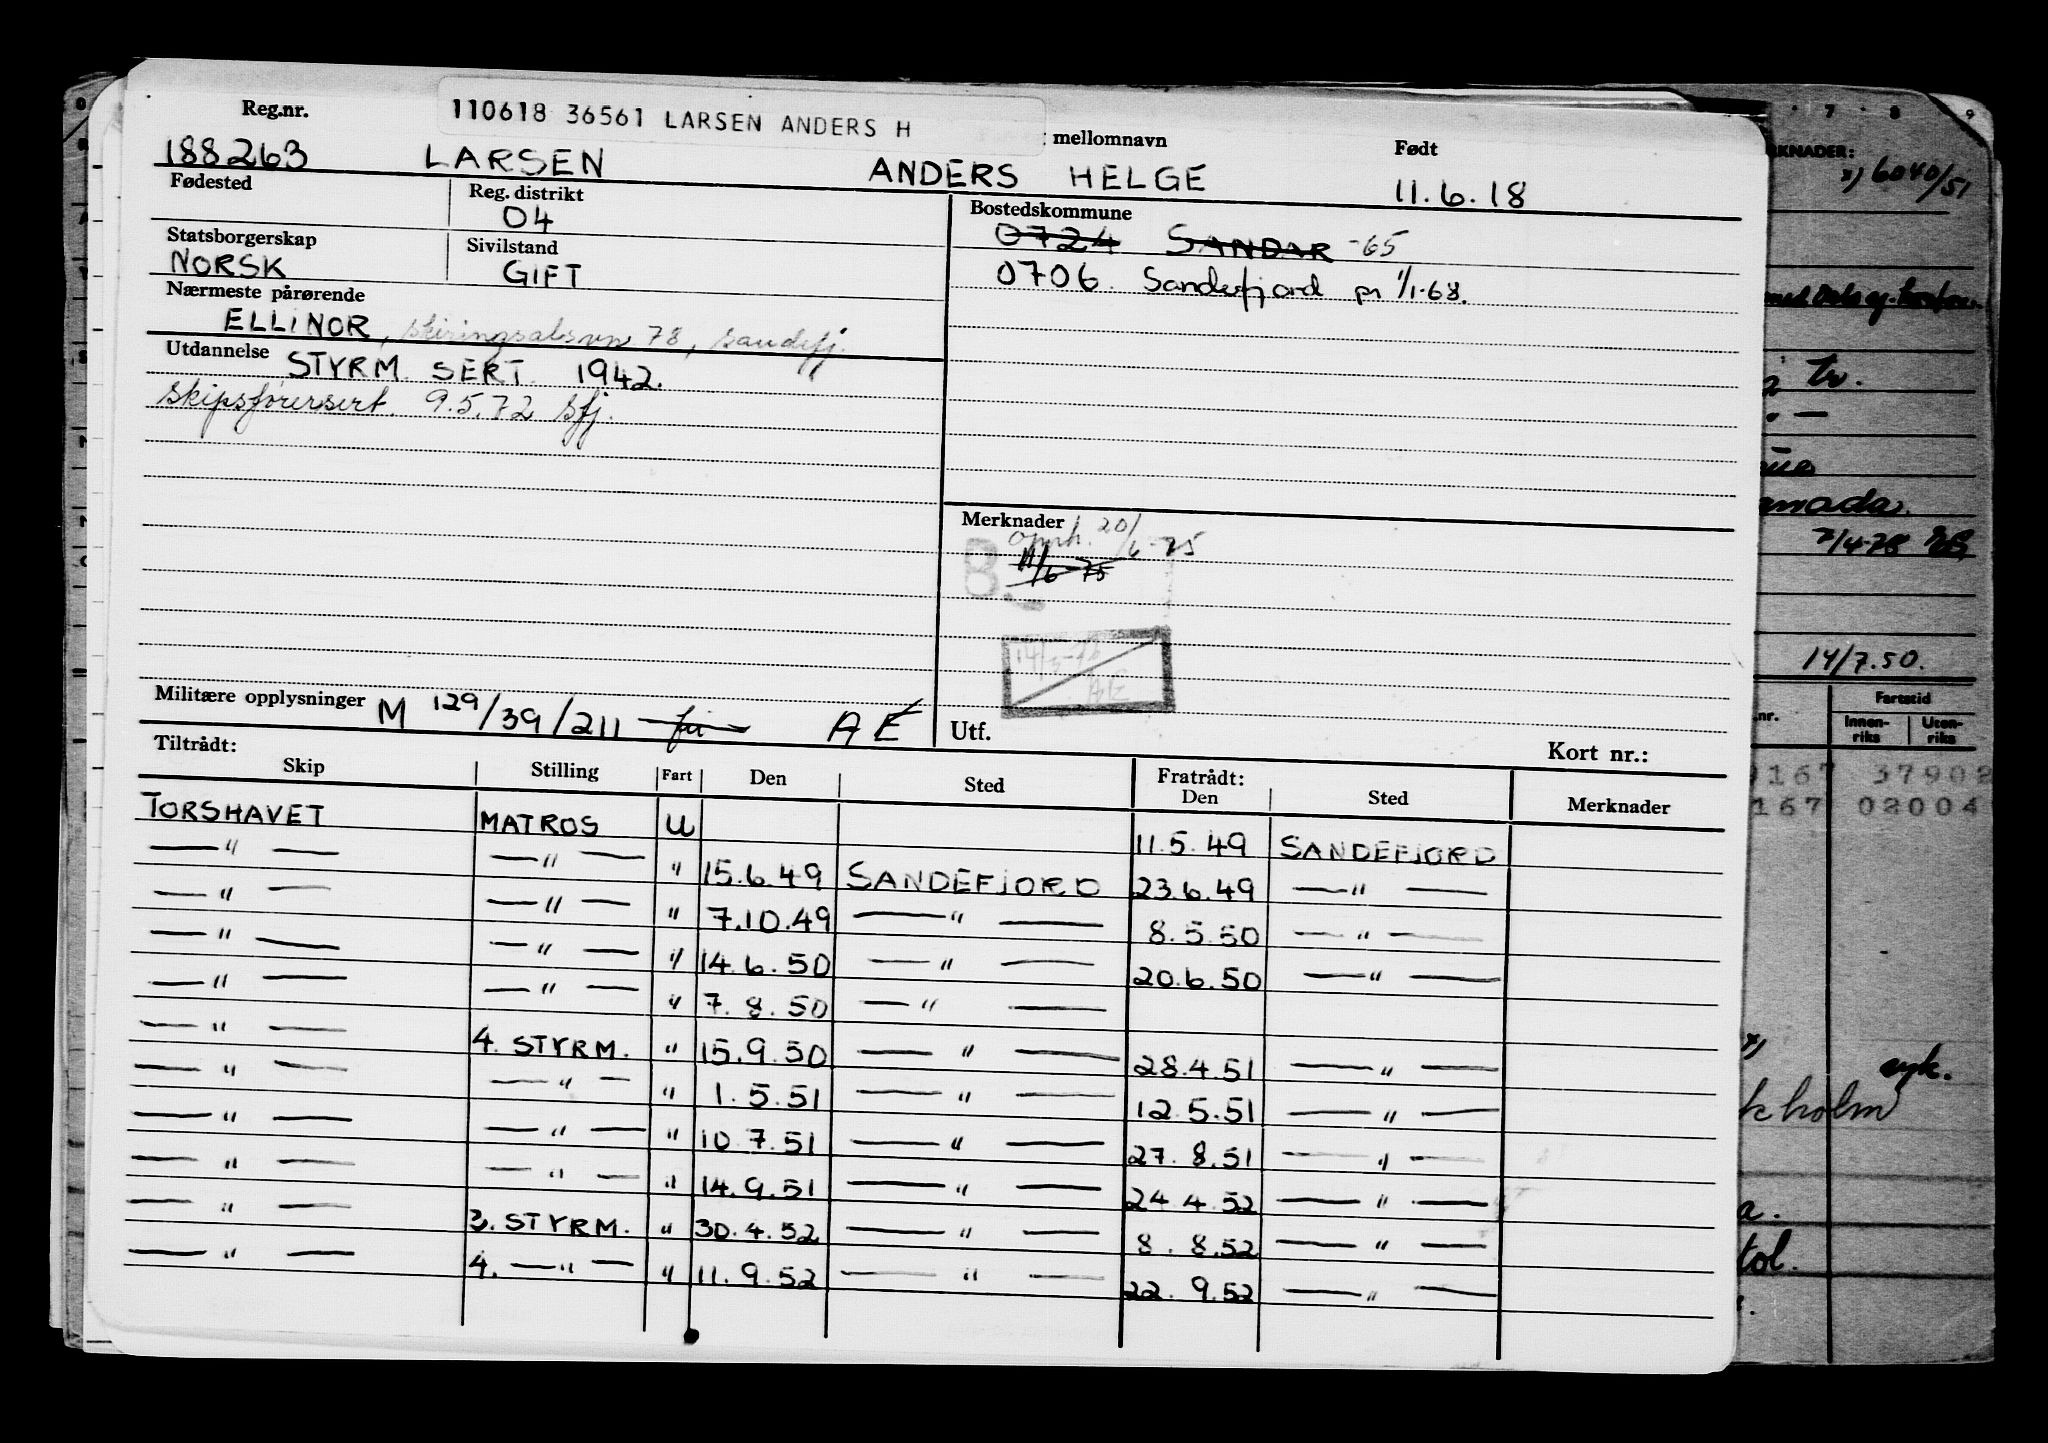 110618 36561 LARSEN ANDERS H
Reg.nr. mellomnavn Født
188263 LARSEN ANDERS HELGE 11.6.18
Fødested Reg. distrikt Bostedskommune
04 0724 SANDAR -65
Statsborgerskap Sivilstand
NORSK GIFT 0706 Sandefjord pr 1/1-68.
Nærmeste pårørende
ELLINOR, skiringsalsvn 78, Sandefj.
Utdannelse STYRM. SERT. 1942.
skipsførersert. 9.5.72 Sfj.
Merknader
Opph. 20/6-75
11/6-75
B.
14/
AE
Militære opplysninger M 129/39/211 AE Utf. Kort nr.:
Tiltrådt: Fratrådt:
Skip Stilling Fart Den Sted Den Sted Merknader
TORSHAVET MATROS U 11.5.49 SANDEFJORD
—"— —"— " 15.6.49 SANDEFJORD 23.6.49 —"—
—"— —"— " 7.10.49 —"— 8.5.50 —"—
—"— —"— " 14.6.50 —"— 20.6.50 —"—
—"— —"— " 7.8.50 —"—
—"— 4. STYRM. " 15.9.50 —"— 28.4.51 —"—
—"— —"— " 1.5.51 —"— 12.5.51 —"—
—"— —"— " 10.7.51 —"— 27.8.51 —"—
—"— —"— " 14.9.51 —"— 24.4.52 —"—
—"— 3. STYRM. " 30.4.52 —"— 8.8.52 —"—
—"— 4. —"— " 11.9.52 —"— 22.9.52 —"—
7 8 9
KNADER:
6040/51
tr.
— " —
7/4-78
14/7.50.
.nr. Fartstid
Innen-riks Uten-riks
167 37902
167 02004
syk.
kholm
a.
tol.